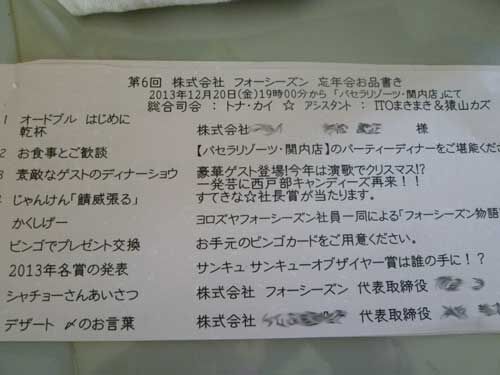 第6回 株式会社 フォーシーズン 忘年会お品書き
2013年12月20日(金)19時00分から 「パセラリゾーツ・関内店」にて
総合司会 : トナ・カイ ☆ アシスタント : ITOまきまき&猿山カズ
1 オードブル はじめに
乾杯 株式会社 様
2 お食事とご歓談 【パセラリゾーツ・関内店】のパーティーディナーをご堪能くださ
3 素敵なゲストのディナーショウ 豪華ゲスト登場!今年は演歌でクリスマス!?
一発芸に西戸部キャンディーズ再来!!
じゃんけん「鯖威張る」 すてきな☆社長賞が当たります。
かくしげー ヨロズヤフォーシーズン社員一同による「フォーシーズン物語
ビンゴでプレゼント交換 お手元のビンゴカードをご用意ください。
2013年各賞の発表 サンキュ サンキューオブザイヤー賞は誰の手に!?
シャチョーさんあいさつ 株式会社 フォーシーズン 代表取締役
デザート 〆のお言葉 株式会社 代表取締役